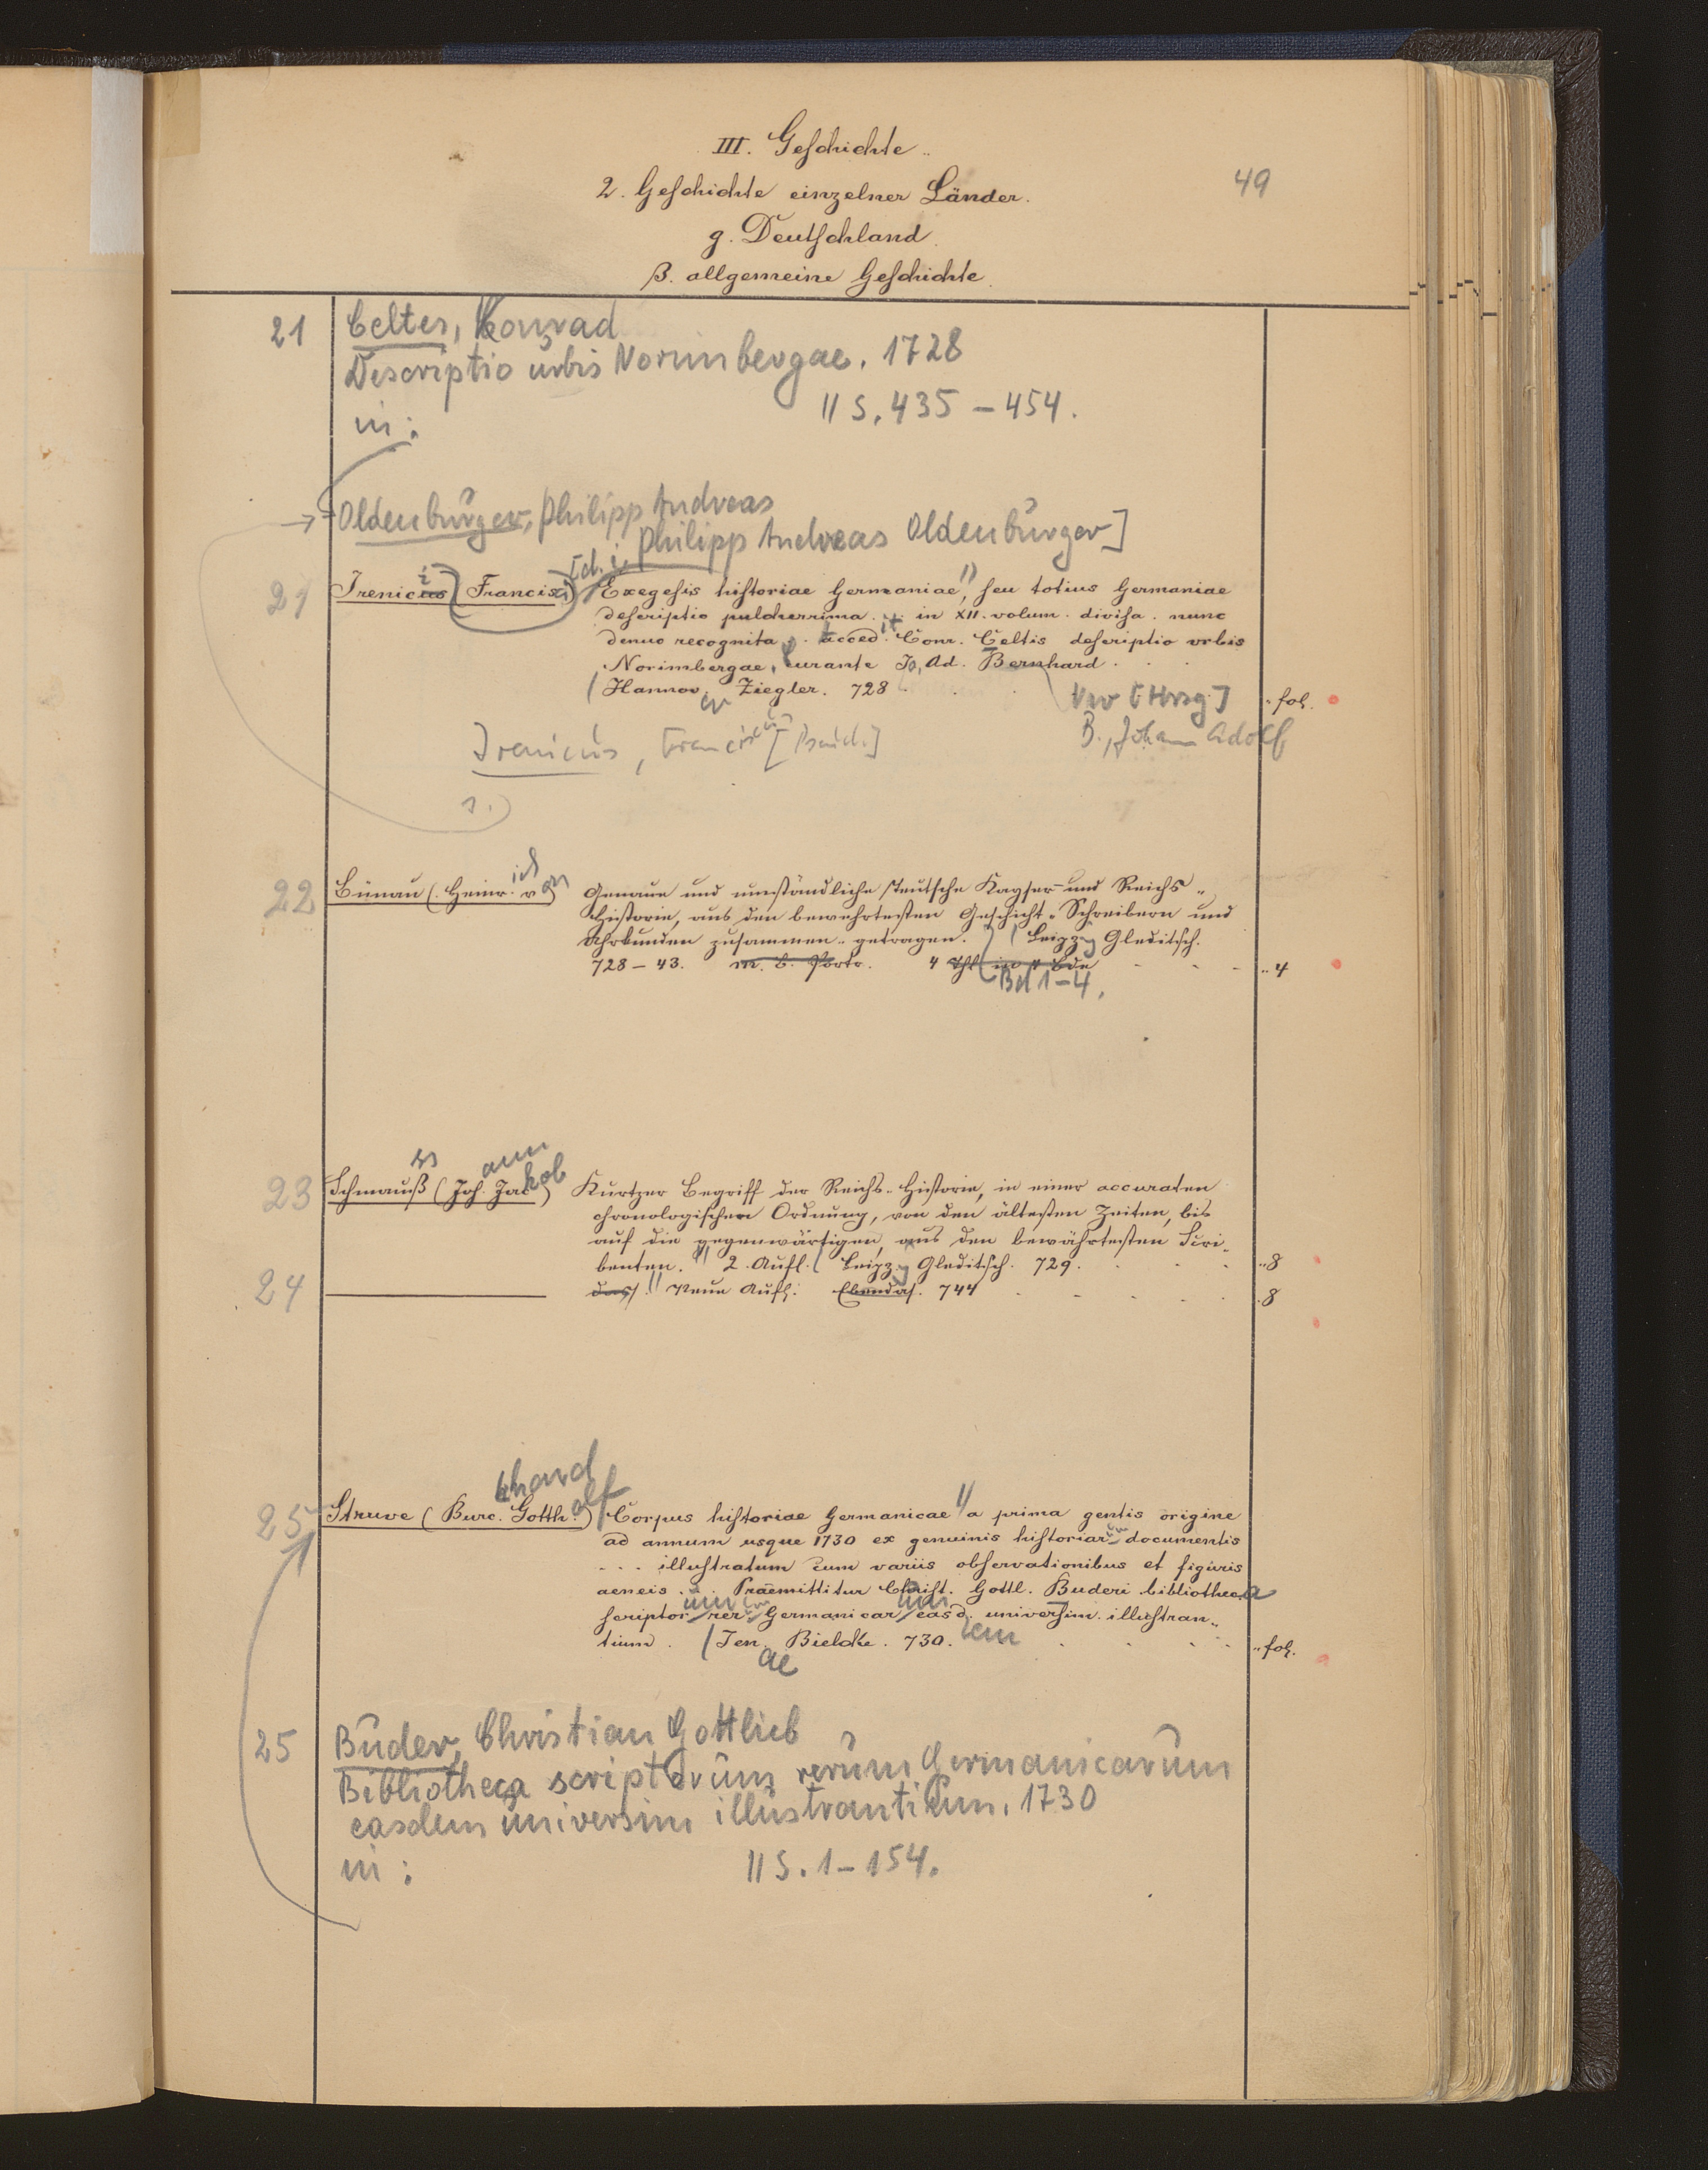 III. Geschichte.
49
2. Geschichte einzelner Länder.
g. Deutschland.
β. allgemeine Geschichte.
21 Celtes, Konrad
Descriptio urbis Norimbergae. 1728
in: // S. 435 – 454.
→ Oldenburger, Philipp Andreas
[d. i. Philipp Andreas Oldenburger]
21 Irenicus (Francisci) Exegesis historiae Germaniae, // seu totius Germaniae
descriptio pulcherrima .. in XII. volum. divisa. nunc
denuo recognita .. accedit Conr. Celtis descriptio vrbis
Norimbergae, curante Jo. Ad. Bernhard.
Hannover Ziegler. 728 fol.
Verw [Hrsg.]
B., Johann Adolf
Irenicus, Franciscus [Pseud.]
s.
22 Bünau (Heinrich von) Genaue und umständliche Teutsche Kayser- und Reichs-
Historie, aus den bewehrtesten Geschicht-Schreibern und
Uhrkunden zusammen-getragen. Leipzig Gleditsch.
728 – 43. m. b. Portr. 4 Thl in 4 Bde 4
Bd 1–4.
23 Schmauß (Johann Jakob) Kurtzer Begriff der Reichs-Historie, in einer accuraten
ss
chronologischen Ordnung, von den ältesten Zeiten, bis
auf die gegenwärtigen, aus den bewährtesten Scri-
benten. // 2. Aufl. Leipzig Gleditsch. 729. 8
24 ——— dass. // Neue Aufl. Ebendas. 744 8
25 Struve (Burchard Gotthelf) Corpus historiae Germanicae // a prima gentis origine
ad annum usque 1730 ex genuinis historiarum documentis
... illustratum cum variis observationibus et figuris
aeneis .. Praemittitur Christ. Gottl. Buderi bibliotheca
scriptorum rerum Germanicarum easdem universim illustran-
tium. Jenae Bielcke. 730. fol.
25 Buder, Christian Gottlieb
Bibliotheca scriptorum rerum Germanicarum
easdem universim illustrantium. 1730
in: // S. 1–154.